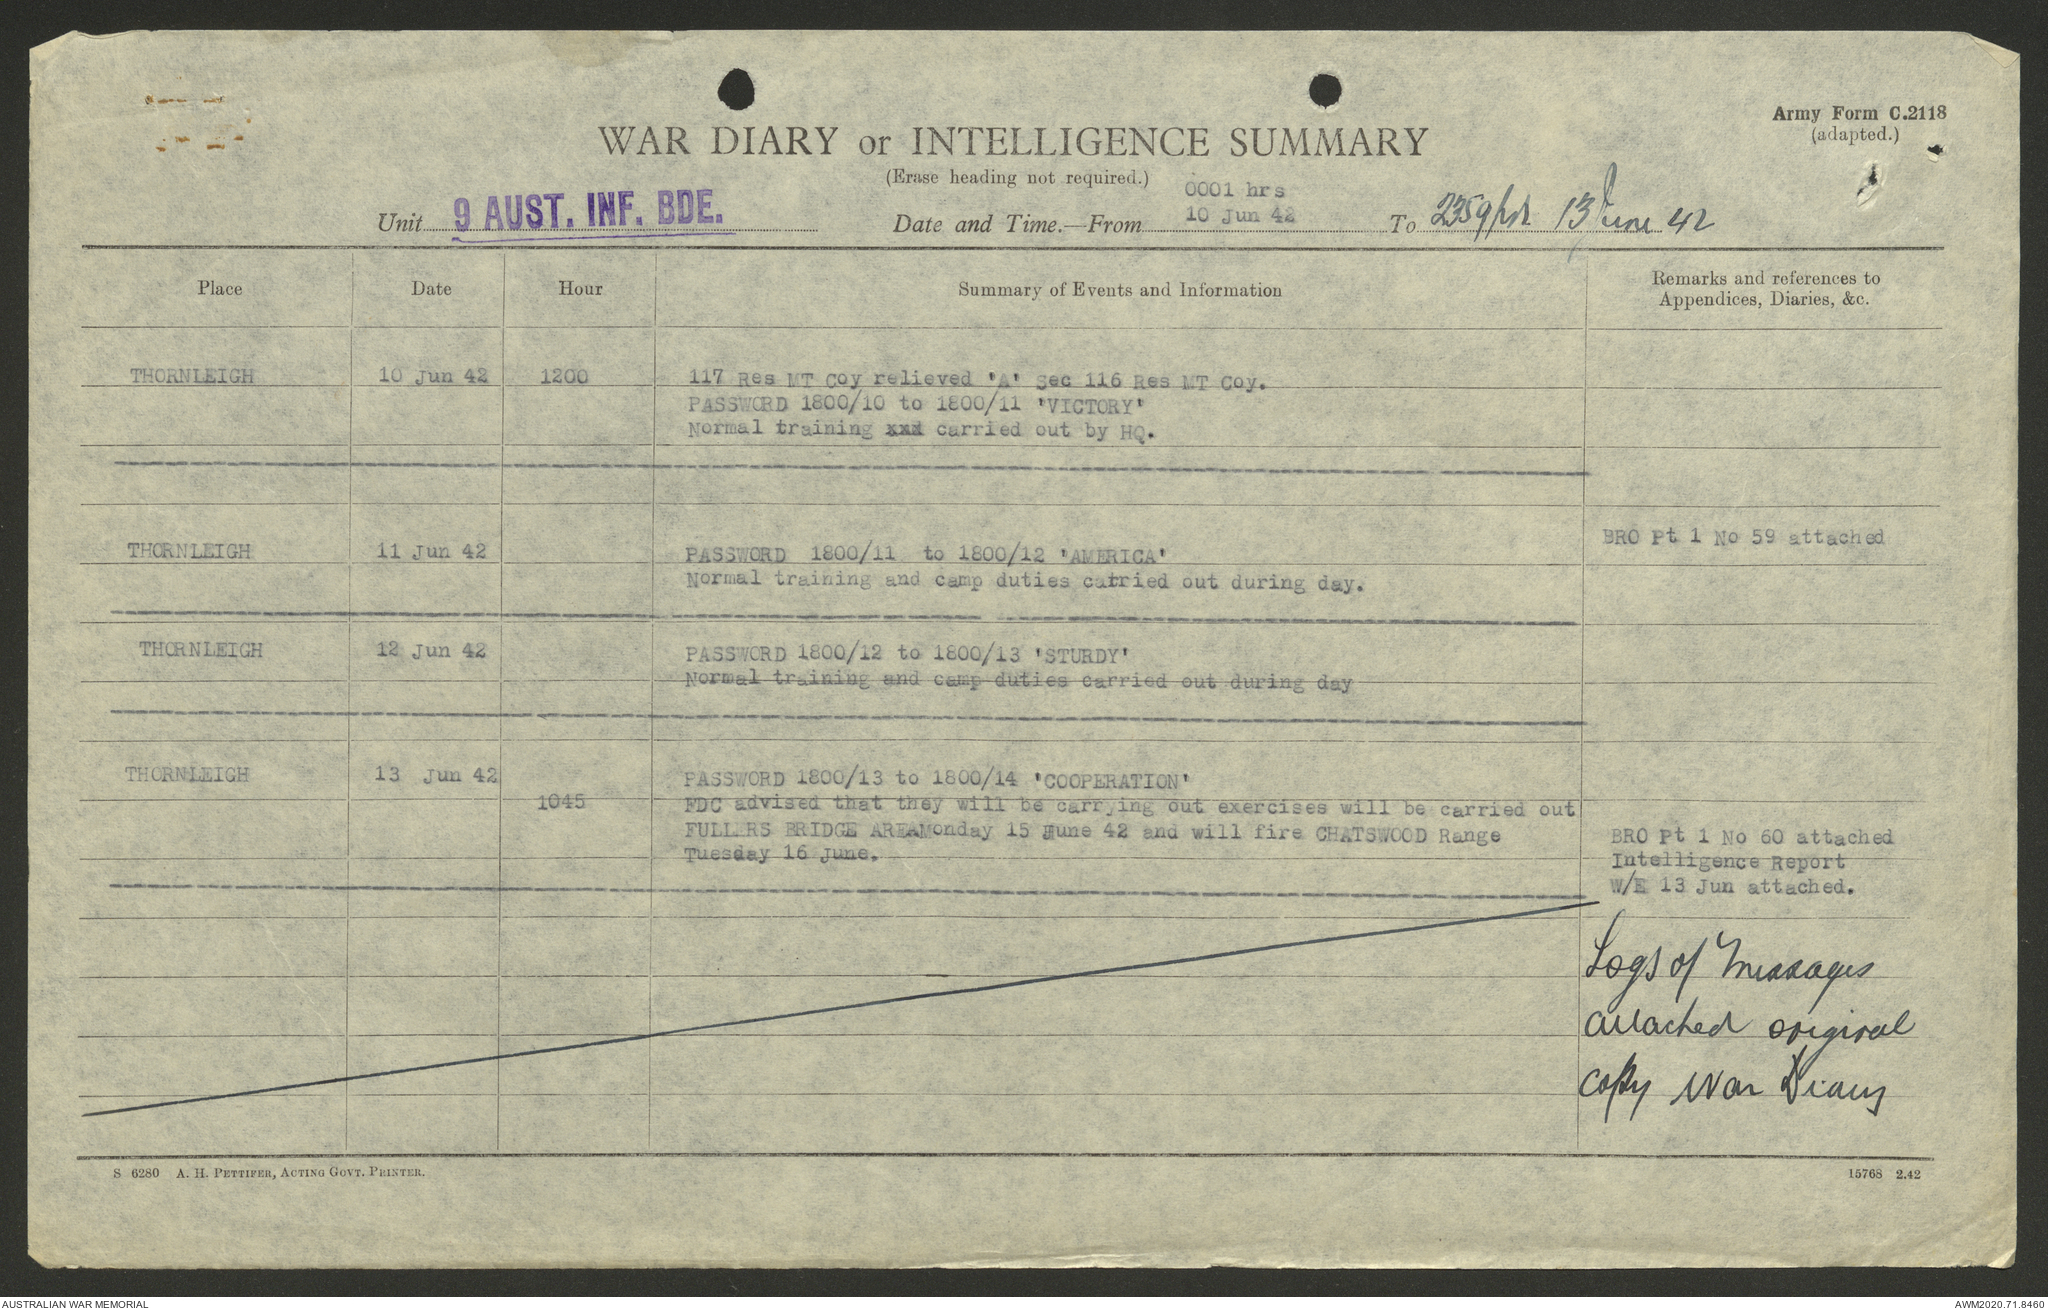 Army Form C.2118
(adapted.)
WAR DIARY or INTELLIGENCE SUMMARY
(Erase heading not required.)
Unit 9 AUST. INF. BDE. Date and Time.—From 0001 hrs 10 Jun 42 To 2359 hrs 13 June 42
Place Date Hour Summary of Events and Information Remarks and references to
Appendices, Diaries, &c.
THORNLEIGH 10 Jun 42 1200 117 Res MT Coy relieved 'A' Sec 116 Res MT Coy.
PASSWORD 1800/10 to 1800/11 'VICTORY'
Normal training xxx carried out by HQ.
THORNLEIGH 11 Jun 42 PASSWORD 1800/11 to 1800/12 'AMERICA' BRO Pt 1 No 59 attached
Normal training and camp duties carried out during day.
THORNLEIGH 12 Jun 42 PASSWORD 1800/12 to 1800/13 'STURDY'
Normal training and camp duties carried out during day
THORNLEIGH 13 Jun 42 PASSWORD 1800/13 to 1800/14 'COOPERATION'
1045 FDC advised that they will be carrying out exercises will be carried out
FULLERS BRIDGE AREAMonday 15 June 42 and will fire CHATSWOOD Range
Tuesday 16 June.
BRO Pt 1 No 60 attached
Intelligence Report
W/E 13 Jun attached.
Logs of Messages
attached original
copy War Diary
S 6280 A. H. PETTIFER, ACTING GOVT. PRINTER. 15768 2.42
AUSTRALIAN WAR MEMORIAL AWM2020.71.8460